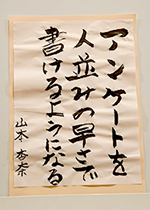 アンケートを
人並みの早さで
書けるようになる
山本 杏奈